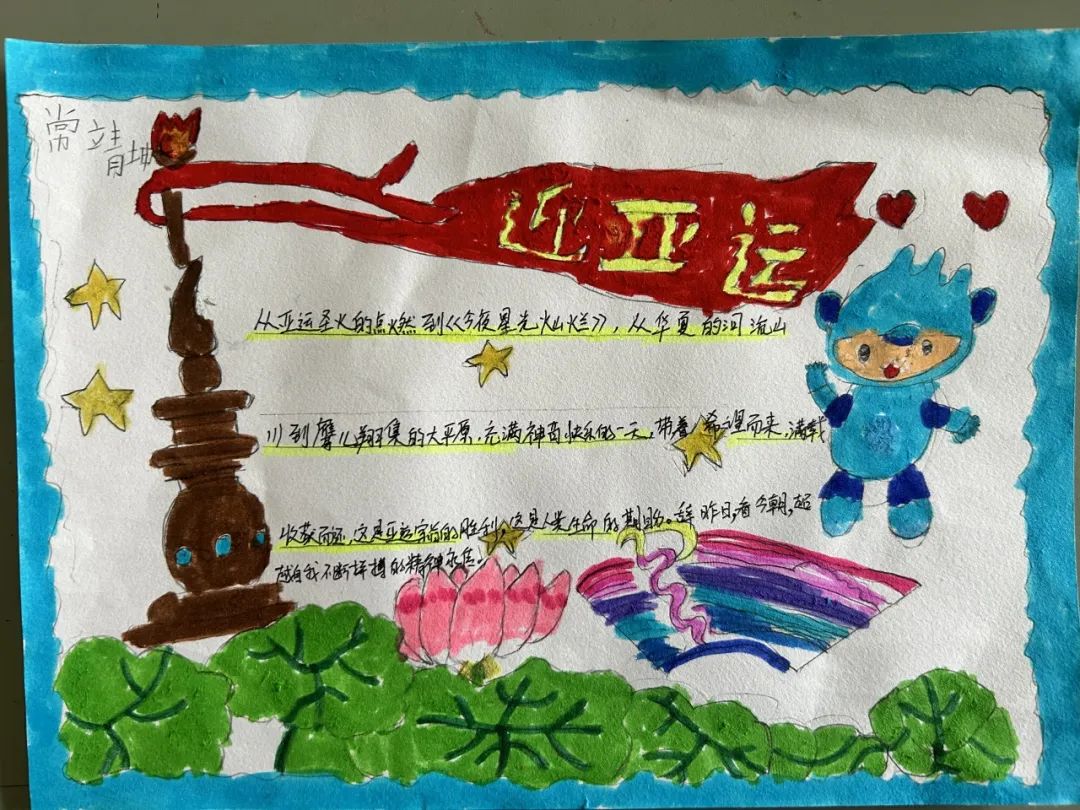 常靖
迎亚运
从亚运圣火的点燃到《今夜星光灿烂》，从华夏的河流山
川到鹰儿翔集的大平原，充满神奇快乐的一天，带着希望而来，满载
收获而还，这是亚运宗旨的胜利，这是人类生命的期盼。辞昨日，看今朝，超
越自我不断拼搏的精神永恒。